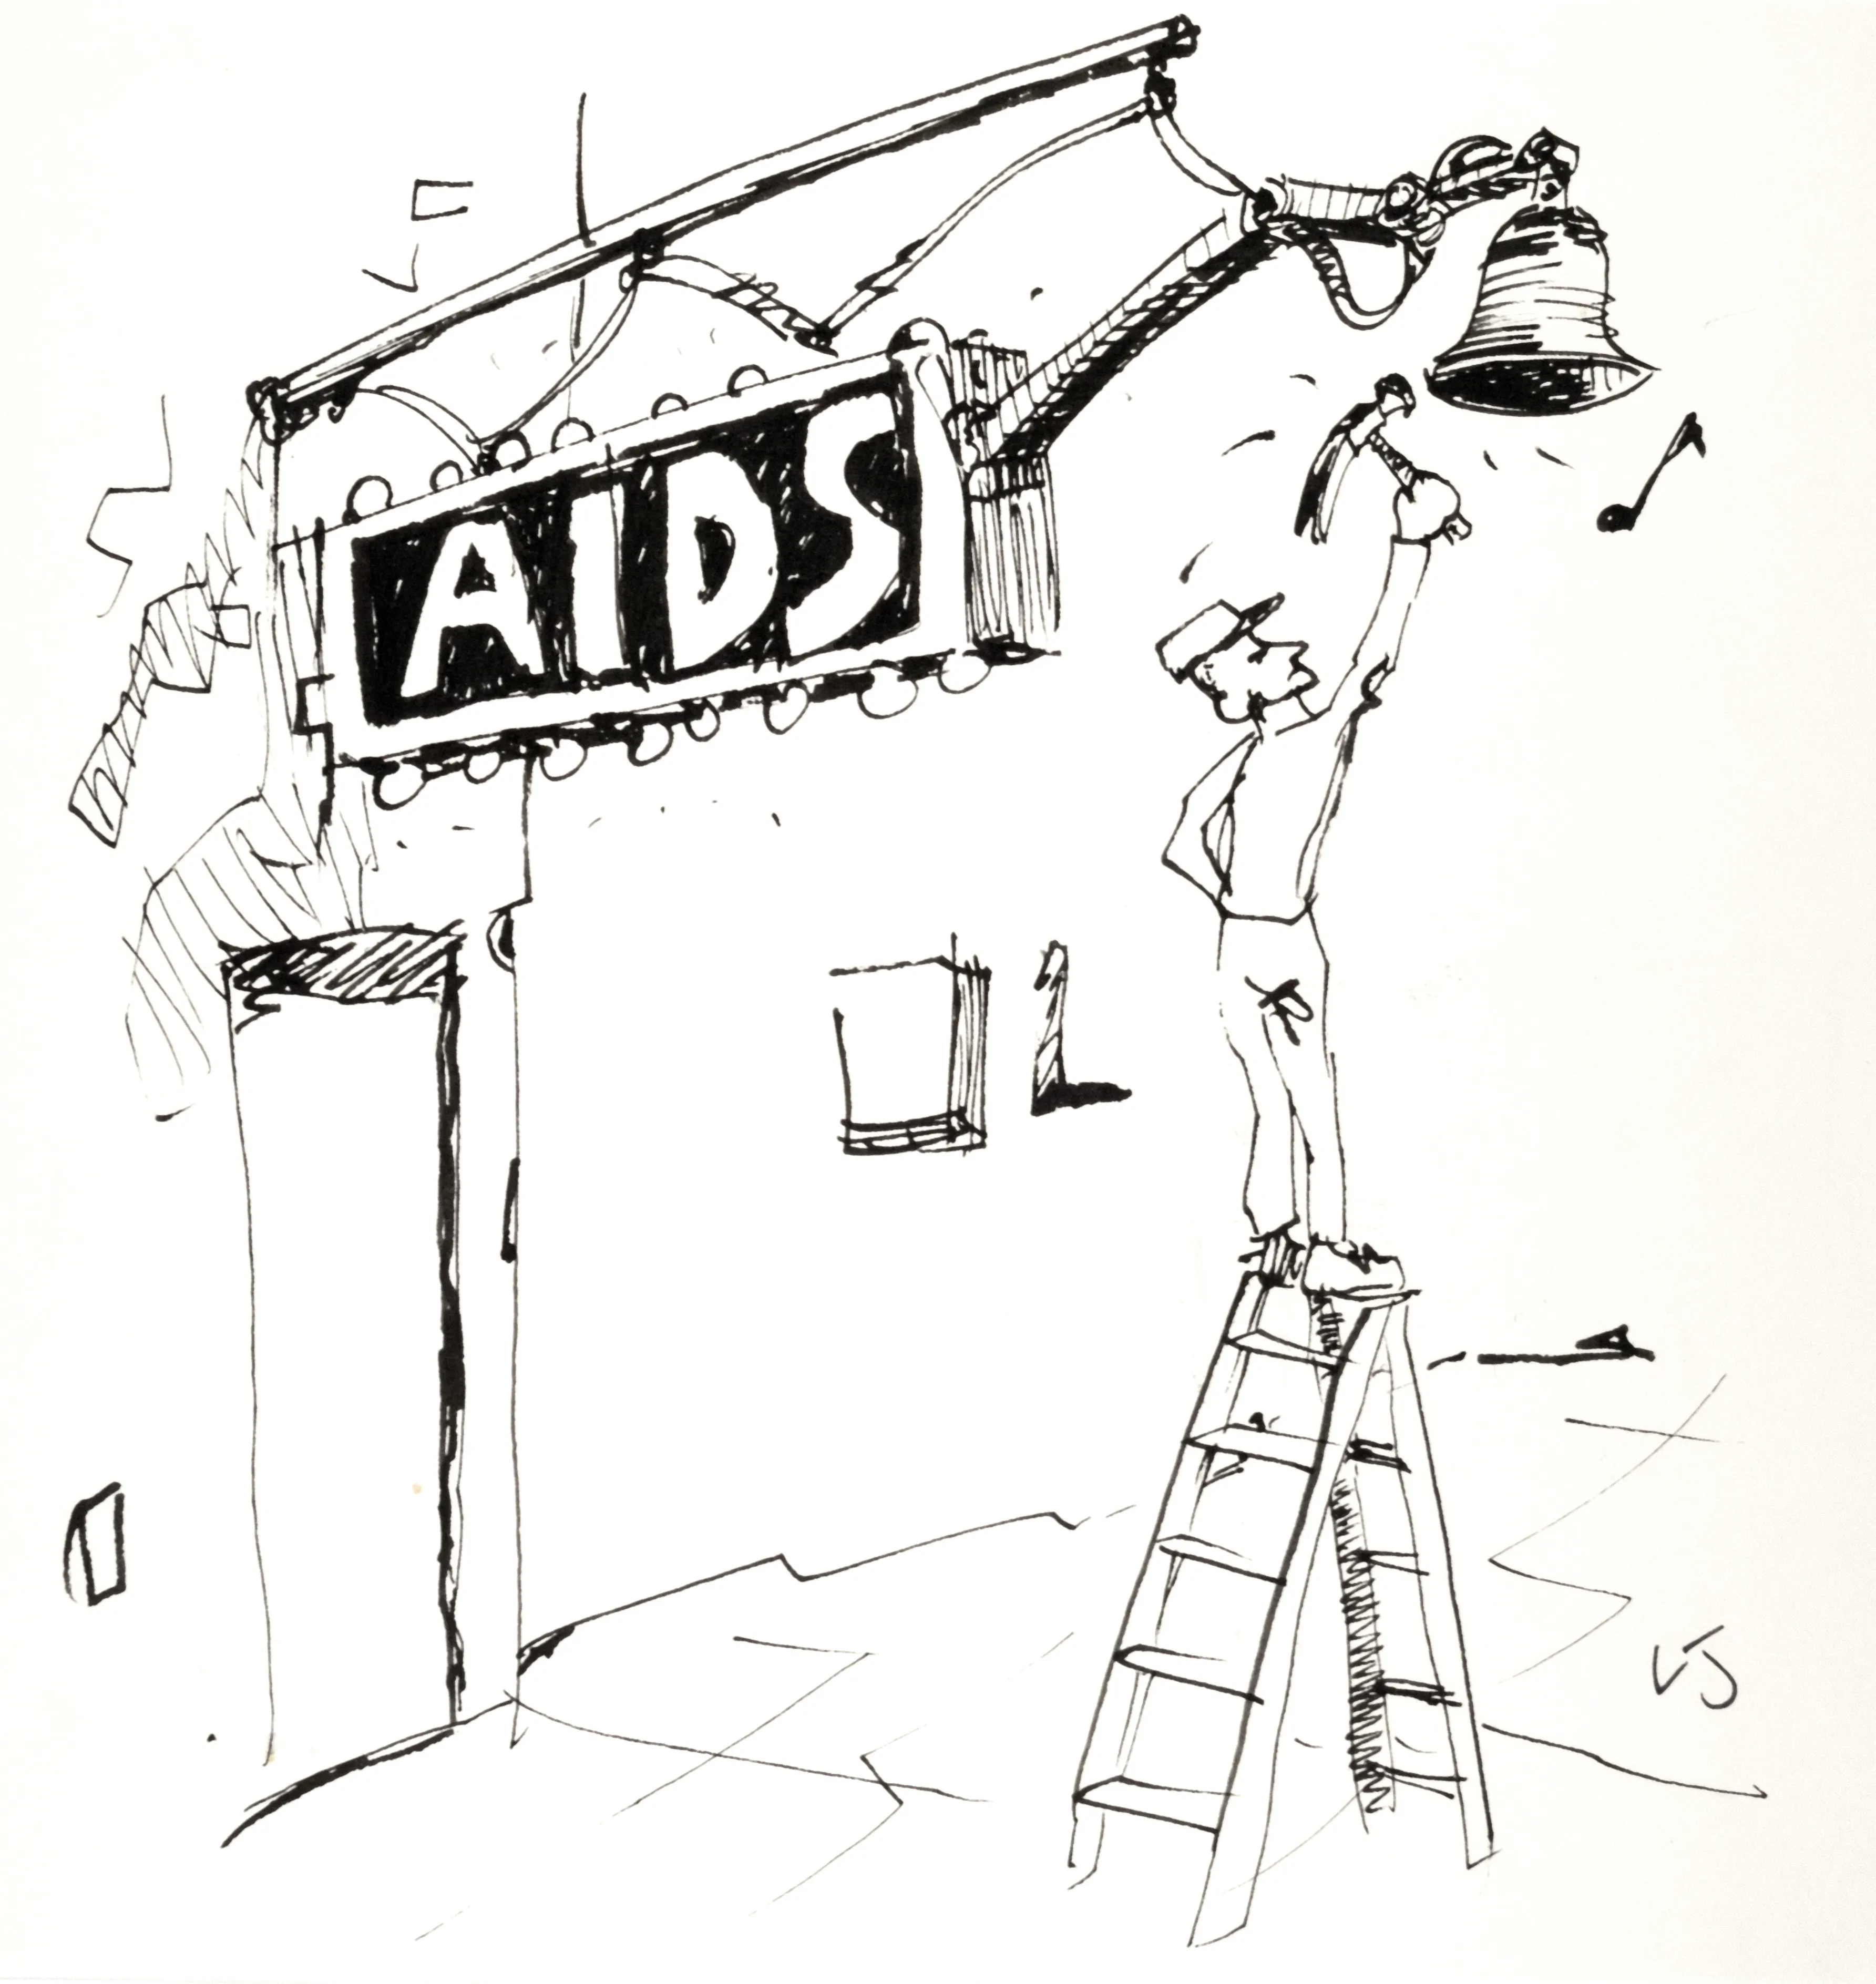 AIDS
VJ